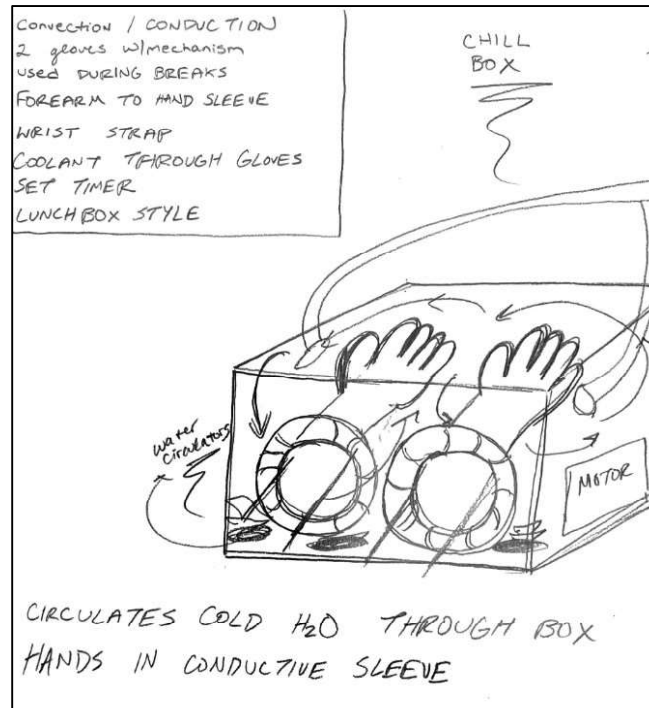 Convection / CONDUCTION
2 gloves w/mechanism
used DURING BREAKS
FOREARM TO HAND SLEEVE
WRIST STRAP
COOLANT THROUGH GLOVES
SET TIMER
LUNCHBOX STYLE
CHILL
BOX
water
circulators
MOTOR
CIRCULATES COLD H₂O THROUGH BOX
HANDS IN CONDUCTIVE SLEEVE